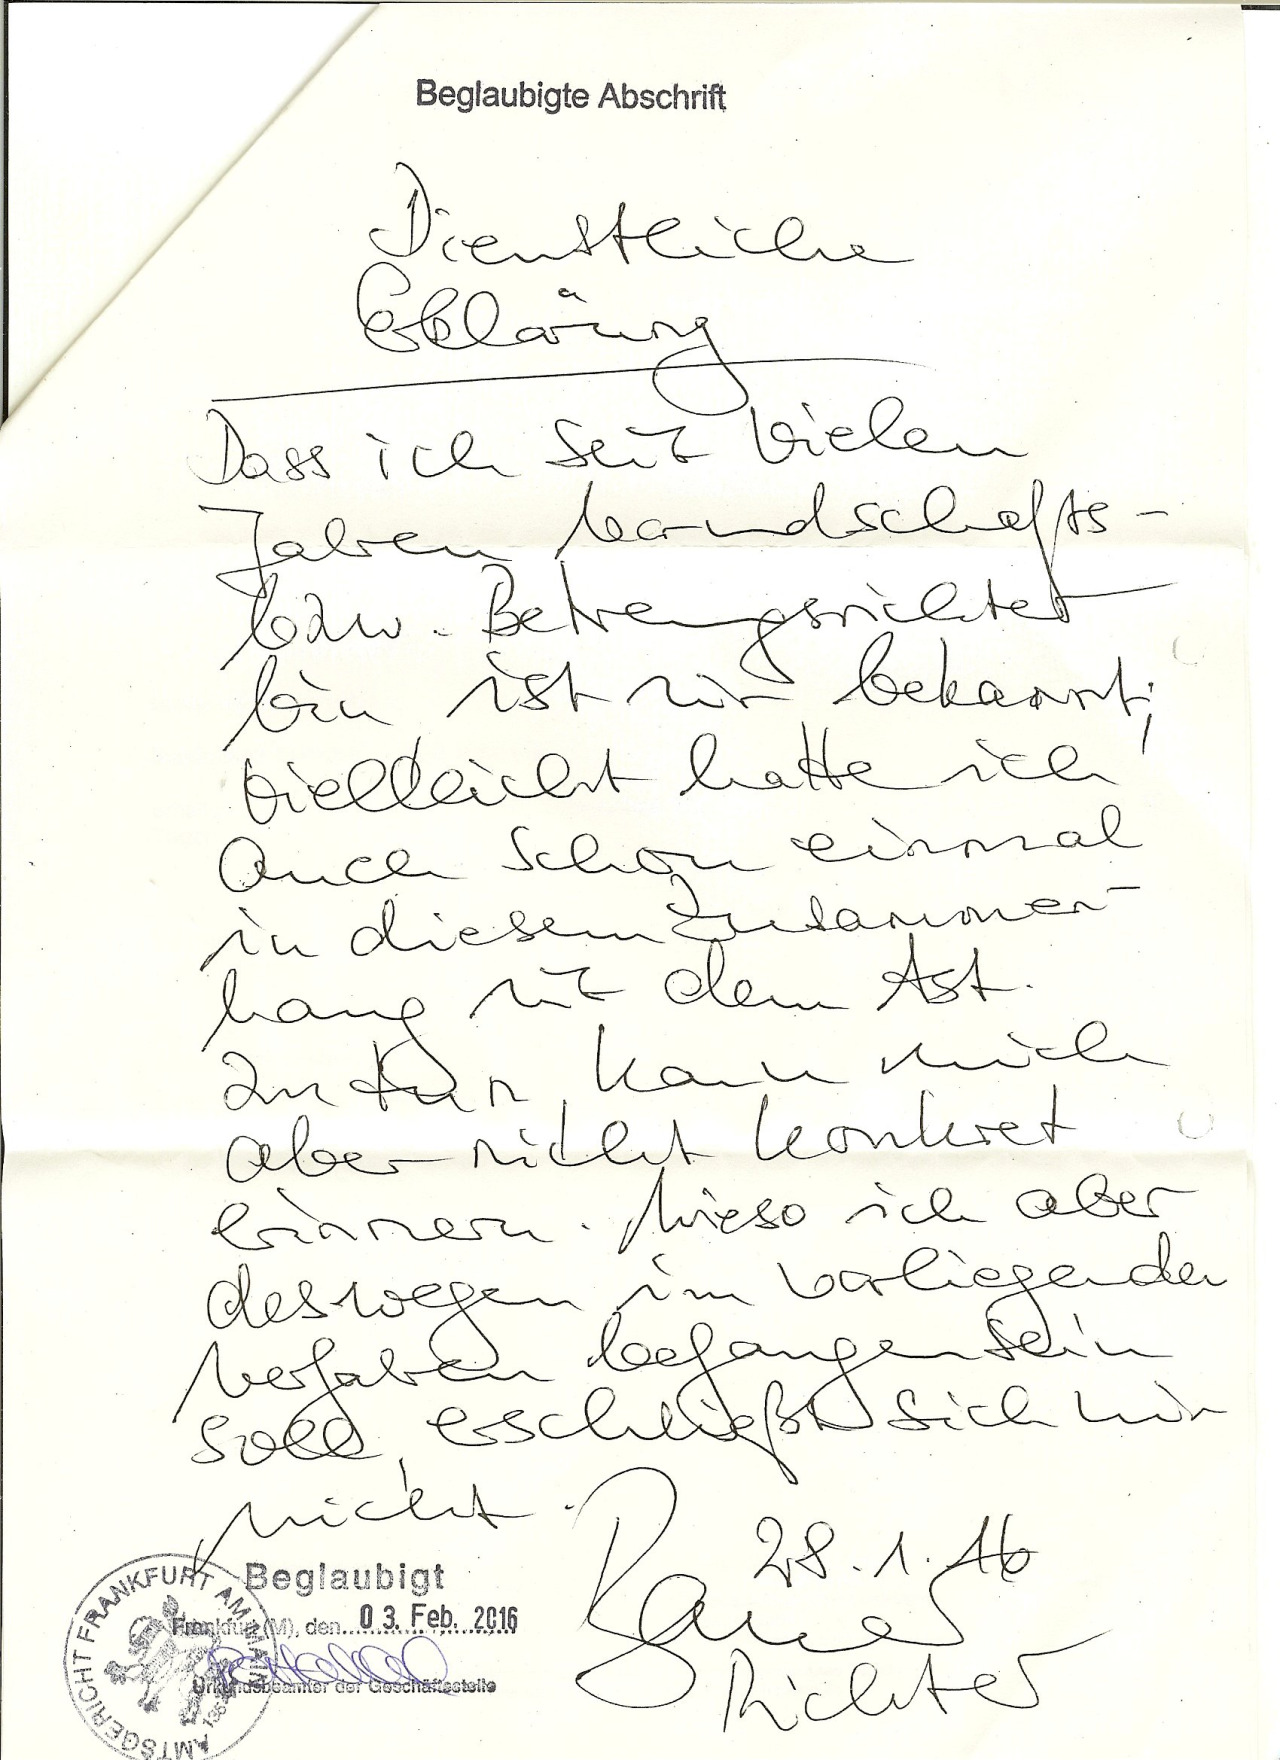 Beglaubigte Abschrift
Dienstliche
Erklärung
Dass ich seit vielen
Jahren Landschafts-
bzw. Betreuungsrichter
bin ist mir bekannt;
vielleicht hatte ich
auch schon einmal
in diesem Zusammen-
hang mit dem Ast.
zu tun, kann mich
aber nicht konkret
erinnern. Wieso ich aber
deswegen im vorliegenden
Verfahren befangen sein
soll, erschließt sich mir
nicht.
28.1.16
Richter
Beglaubigt
Frankfurt (M), den 03. Feb. 2016
Urkundsbeamter der Geschäftsstelle
AMTSGERICHT FRANKFURT AM MAIN